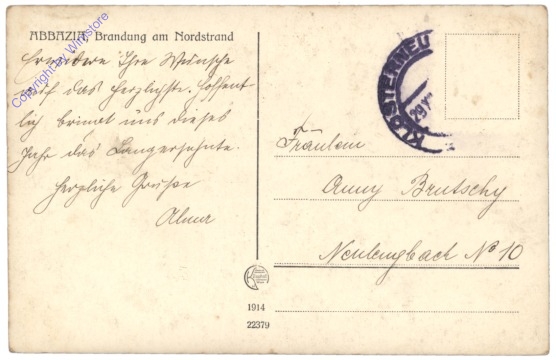 ABBAZIA, Brandung am Nordstrand
Copyright by Winstore
Erwidere Ihre Wünsche
auf das herzlichste. Hoffent-
lich bringt uns dieses
Jahr das Langersehnte.
Herzliche Grüsse
KLOSTERNEU
29
Fräulein
Anny Brutschy
Neulengbach No 10
1914
22379